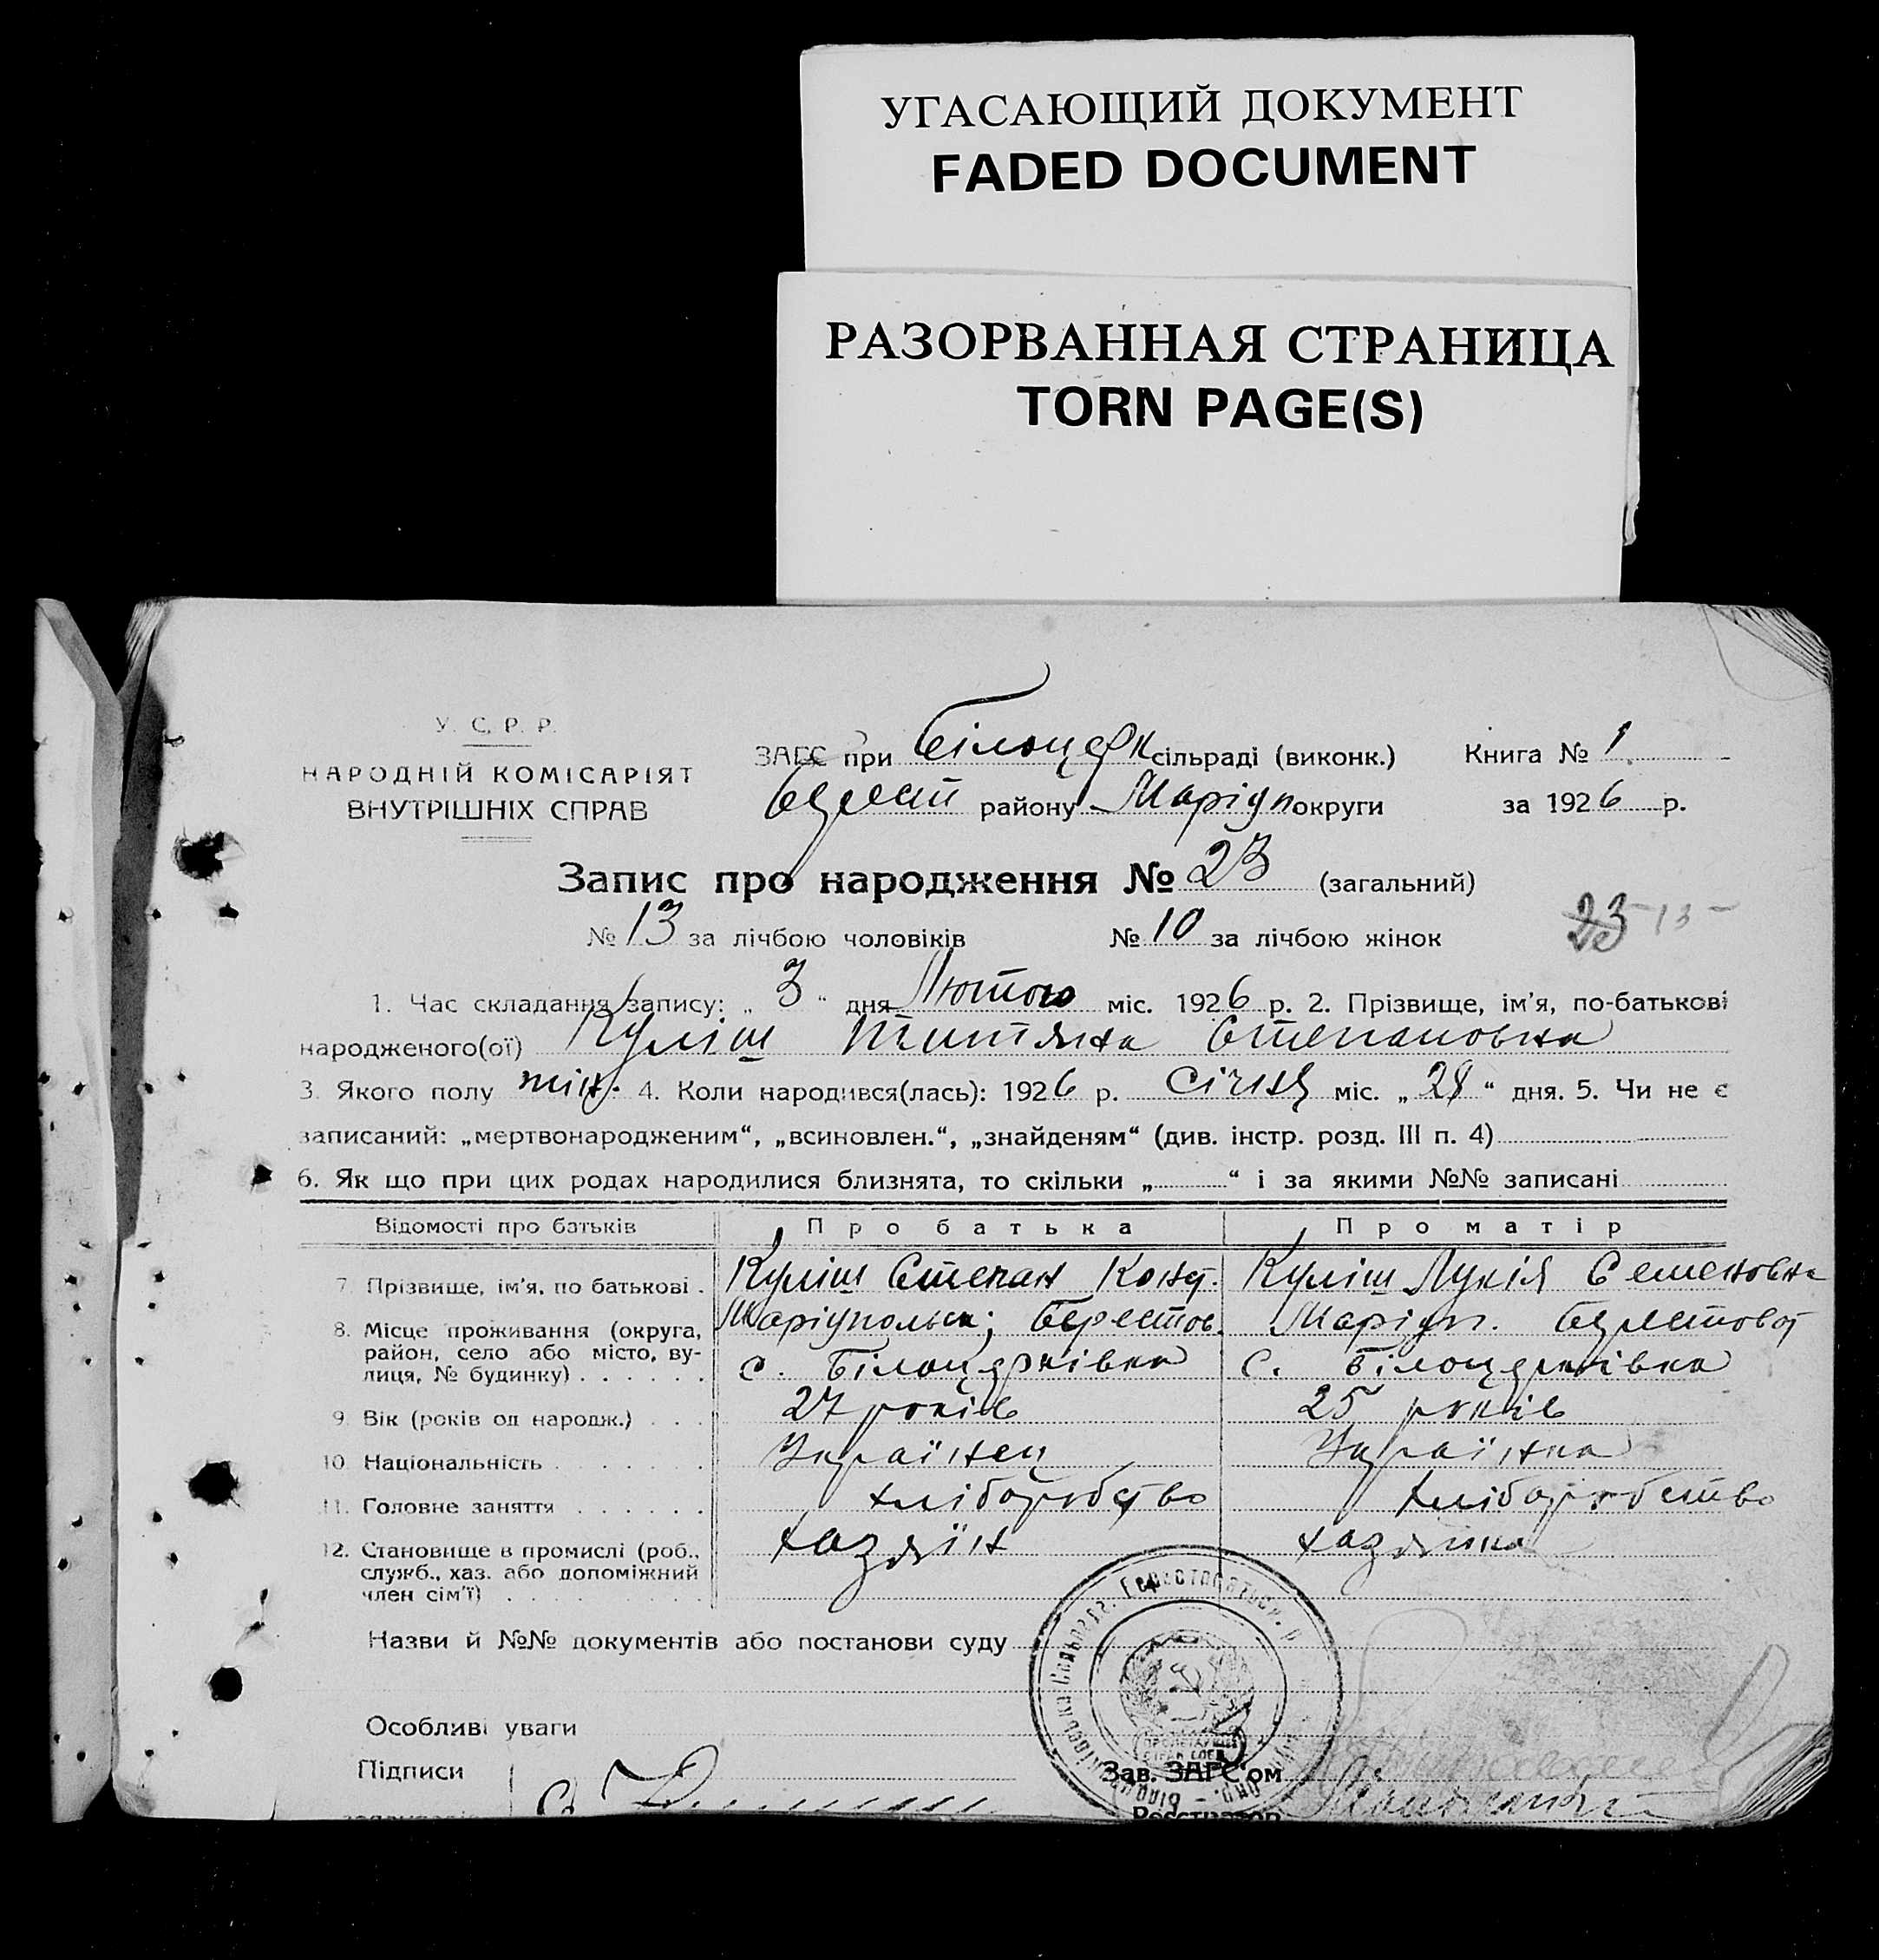 УГАСАЮЩИЙ ДОКУМЕНТ
FADED DOCUMENT
РАЗОРВАННАЯ СТРАНИЦА
TORN PAGE(S)
У. С. Р. Р.
НАРОДНІЙ КОМІСАРІЯТ
ВНУТРІШНІХ СПРАВ
ЗАГС при Білоцерк сільраді (виконк.) Книга № 1
району Маріуп округи за 1926 р.
Запис про народження № 23 (загальний)
№ 13 за лічбою чоловіків № 10 за лічбою жінок
23 - 13 -
1. Час складання запису: „ 3 “ дня Лютого міс. 1926 р. 2. Прізвище, ім'я, по-батькові
народженого(ої) Куліш Титяна Степановна
3. Якого полу жін. 4. Коли народився(лась): 1926 р. Січня міс. „ 28 “ дня. 5. Чи не є
записаний: „мертвонародженим“, „всиновлен.“, „знайденям“ (див. інстр. розд. III п. 4)
6. Як що при цих родах народилися близнята, то скільки „ “ і за якими №№ записані
Відомості про батьків Про батька Про матір
7. Прізвище, ім'я, по батькові . Куліш Степан Конст. Куліш Лукія Семеновна
8. Місце проживання (округа, Маріупольск; Берестов. Маріуп.
район, село або місто, ву-
лиця, № будинку) . . . . . . с. Білоцерківка с. Білоцерківка
9. Вік (років од народж.) . . . 27 років 25 років
10. Національність . . . . . . . Українец Українка
11. Головне заняття . . . . . . хліборобство хліборобство
12. Становище в промислі (роб., хазяїн хазяйка
служб., хаз. або допоміжний
член сім'ї) . . . . . . . . .
Назви й №№ документів або постанови суду
Особливі уваги
Підписи
Зав. ЗАГС'ом
Реєстратор